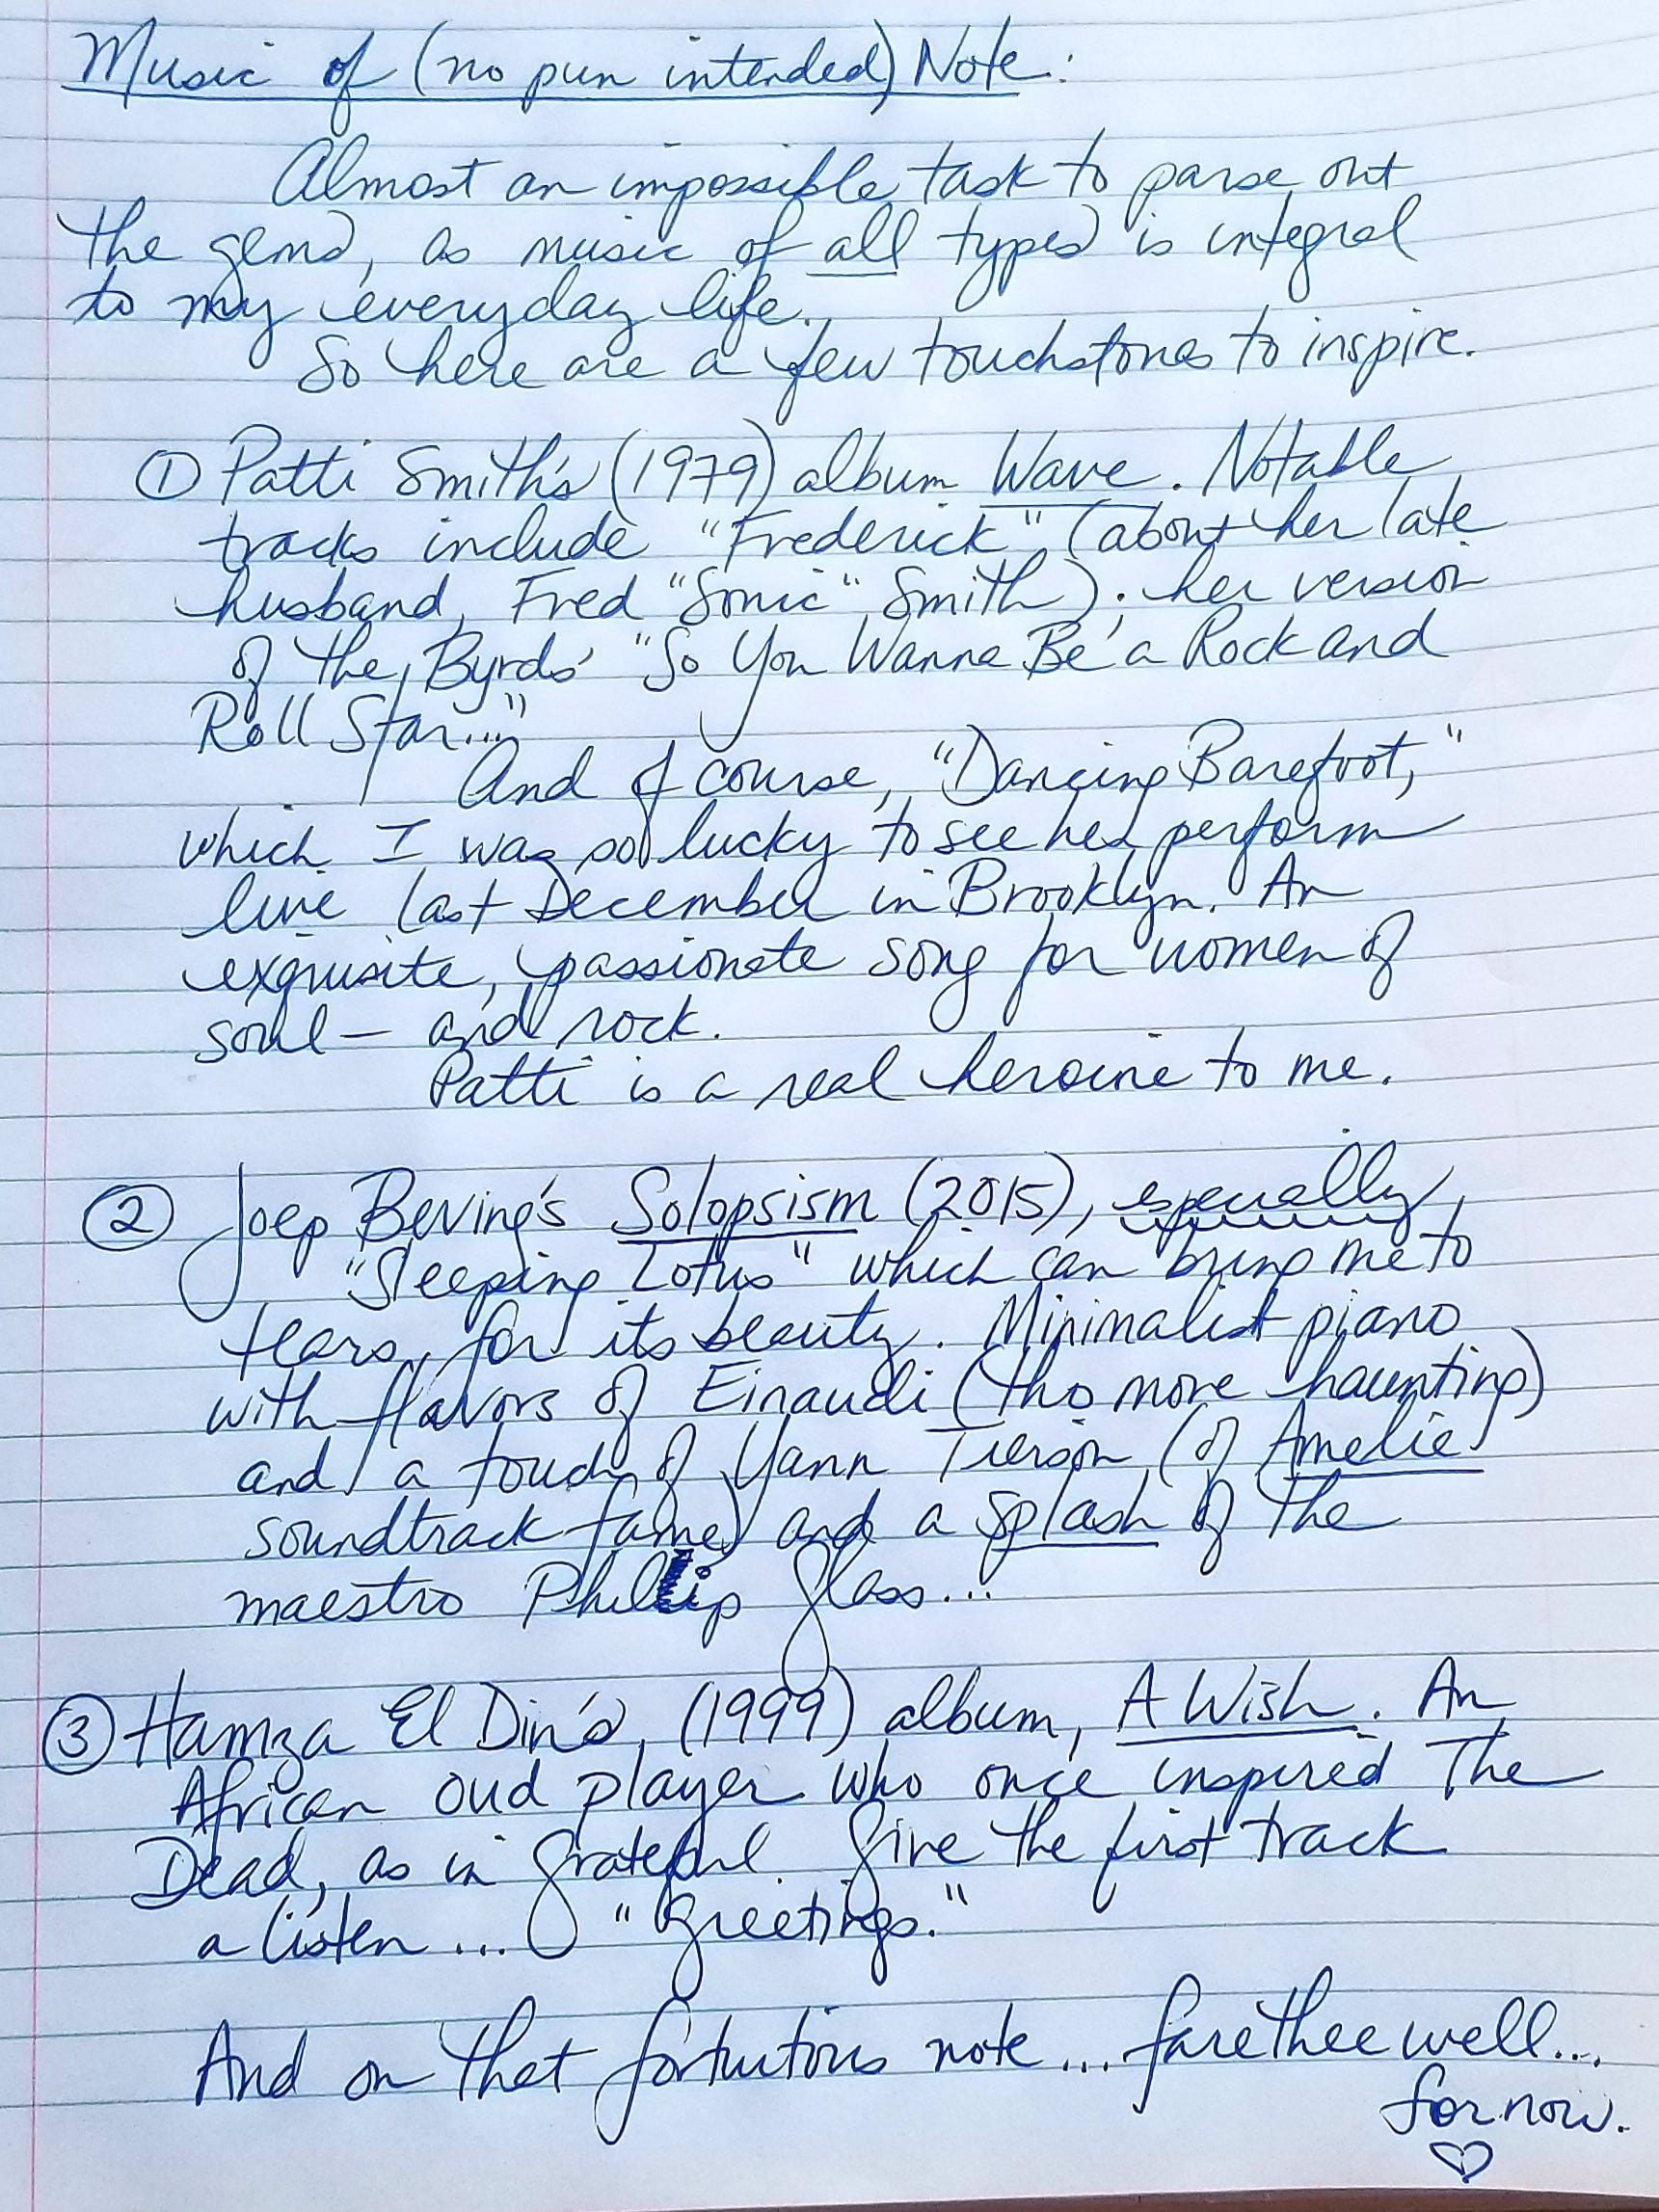 Music of (no pun intended) Note:
Almost an impossible task to parse out
the gems, as music of all types is integral
to my everyday life.
So here are a few touchstones to inspire.
① Patti Smith's (1979) album Wave. Notable
tracks include "Frederick" (about her late
husband, Fred "Sonic" Smith); her version
of the Byrds' "So You Wanna Be a Rock and
Roll Star..."
And of course, "Dancing Barefoot,"
which I was so lucky to see her perform
live last December in Brooklyn. An
exquisite, passionate song for women of
soul — and rock.
Patti is a real heroine to me.
② Joep Beving's Solopsism (2015), especially
"Sleeping Lotus" which can bring me to
tears, for its beauty. Minimalist piano
with flavors of Einaudi (tho more haunting)
and a touch of Yann Tierson (of Amelie
soundtrack fame) and a splash of the
maestro Phillip Glass...
③ Hamza El Din's, (1999) album, A Wish. An
African oud player who once inspired The
Dead, as in Grateful. Give the first track
a listen... "Greetings."
And on that fortuitous note... fare thee well...
for now.
♡